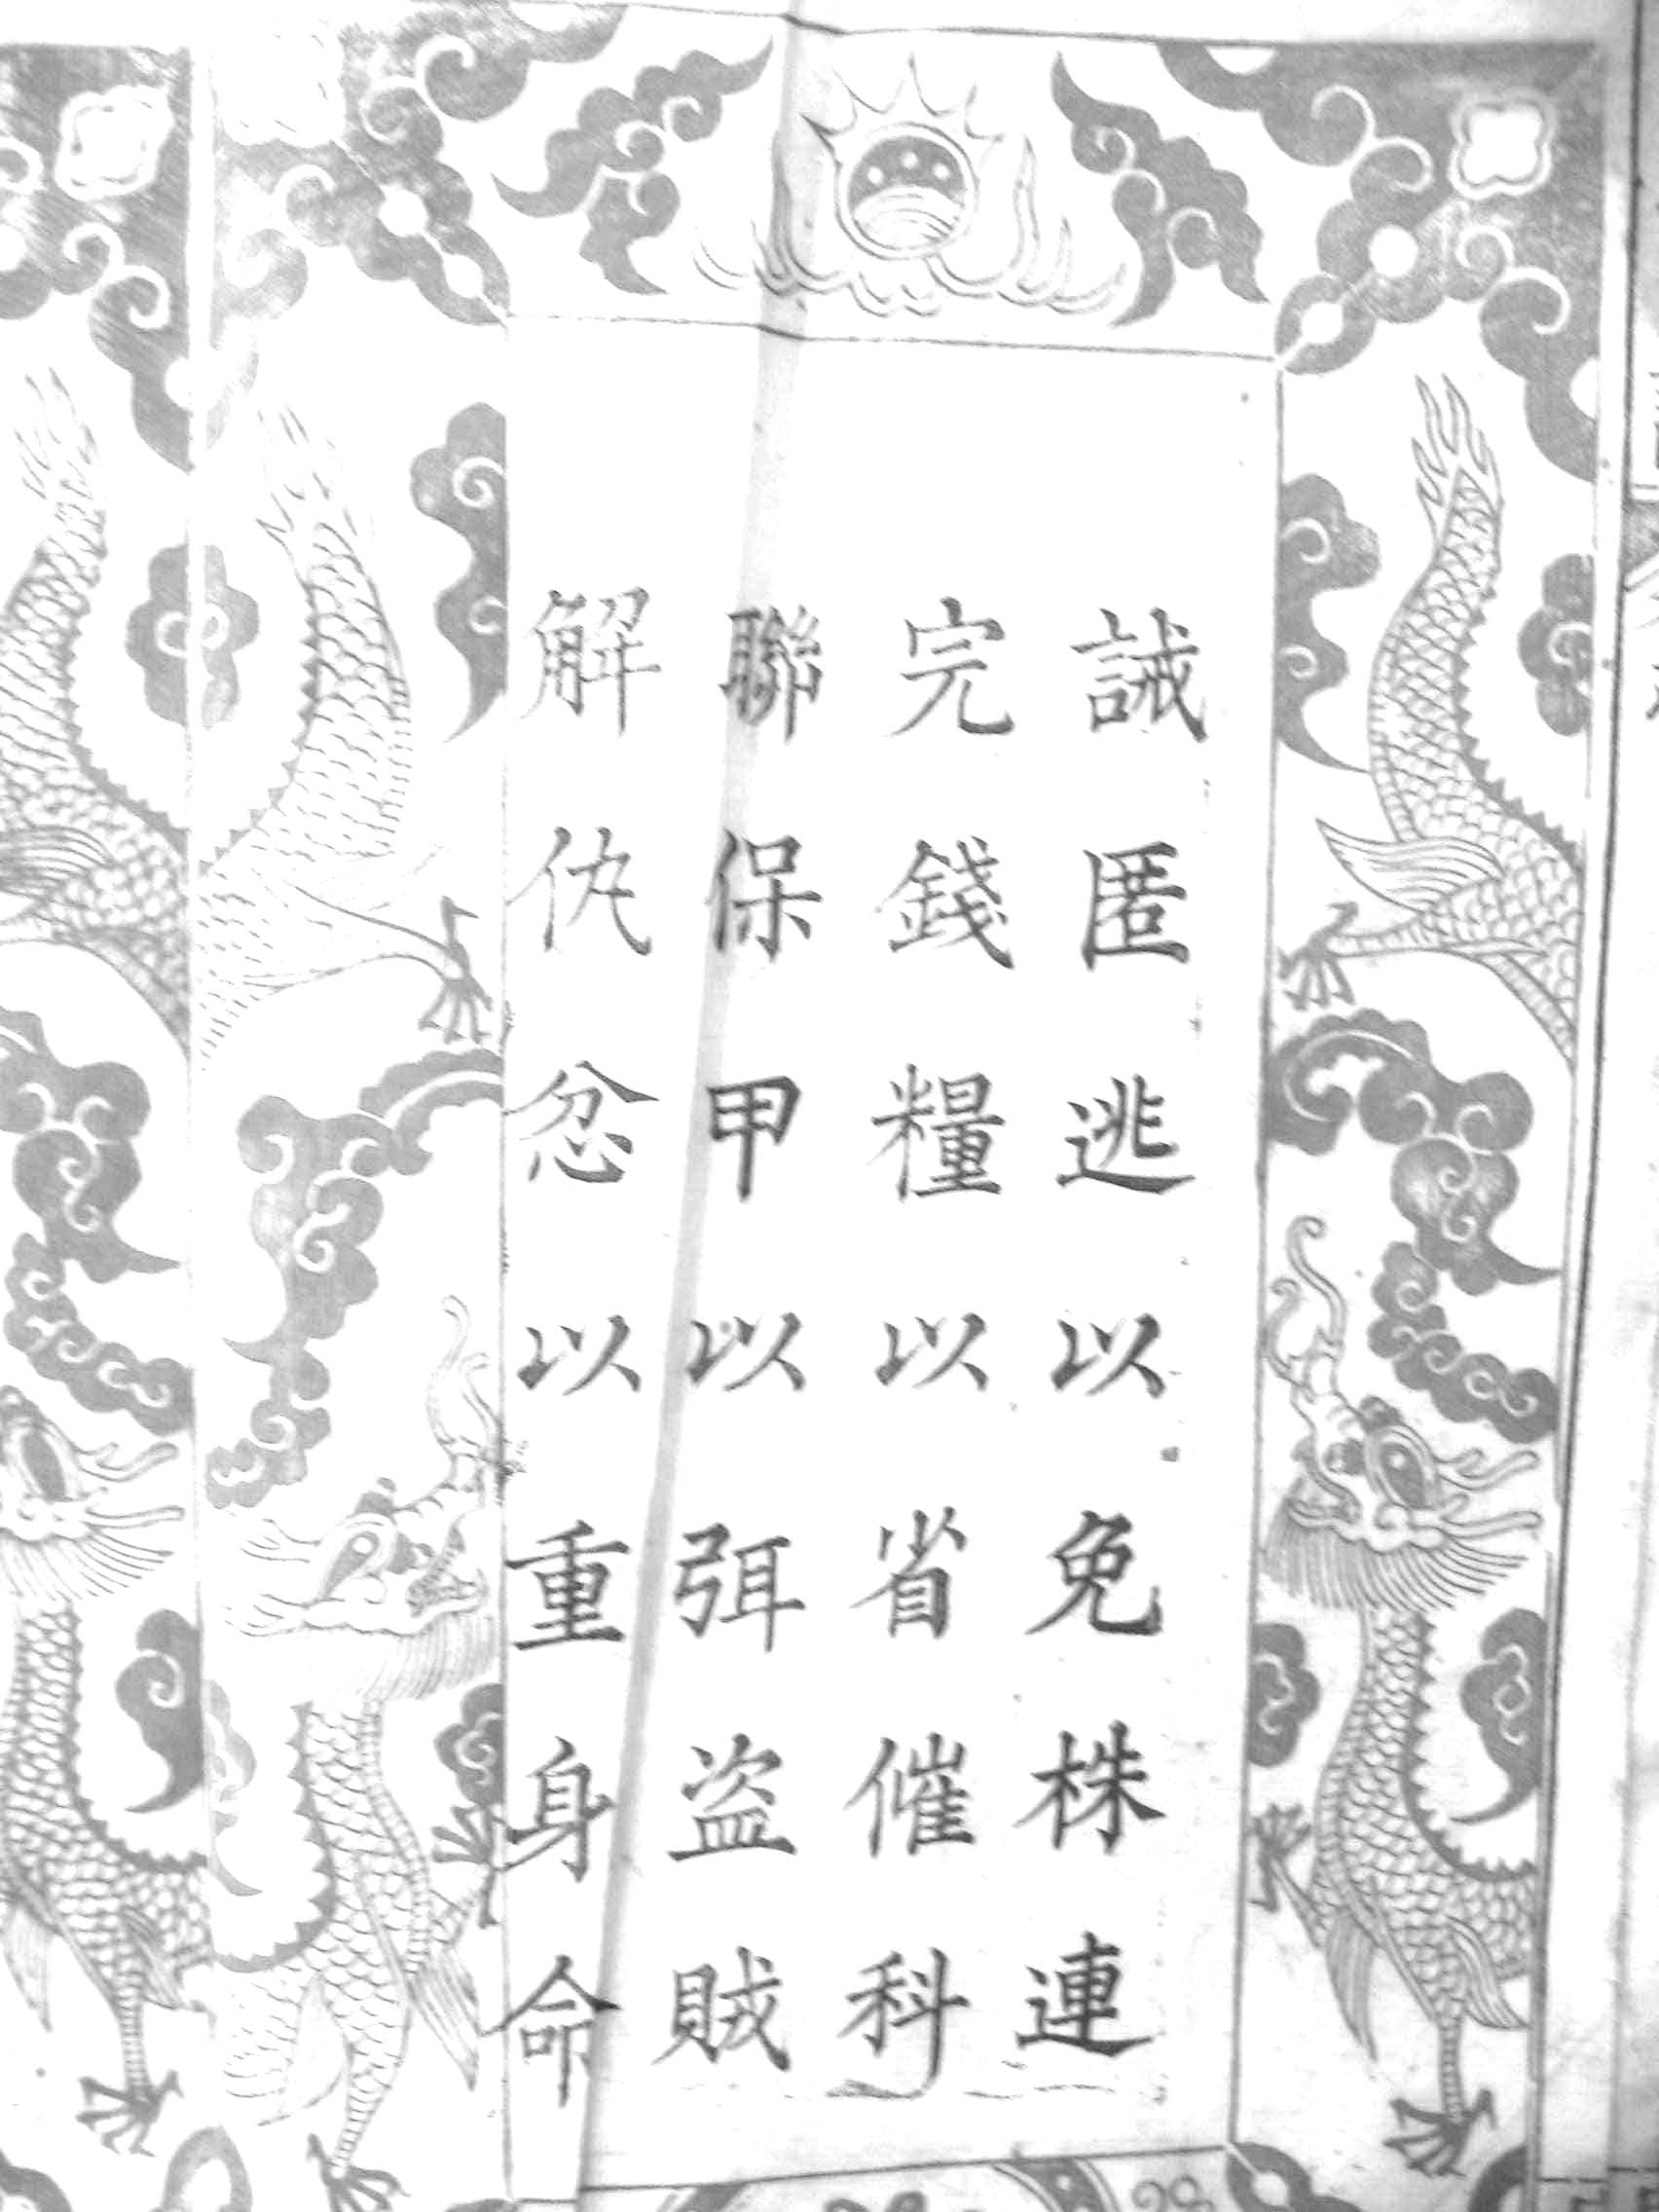 誡匿逃以免株連
完錢糧以省催科
聯保甲以弭盜賊
解仇忿以重身命